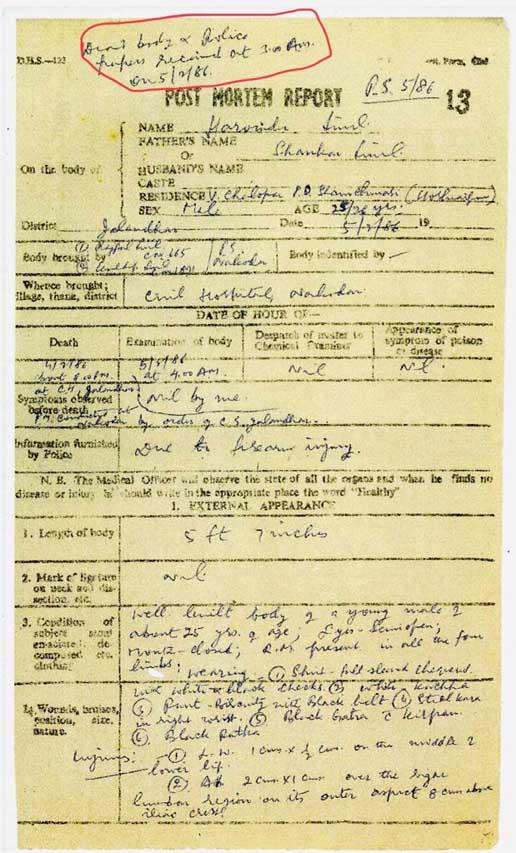 Dead body & Police
papers received at 3.00 Am.
on 5/2/86.
D.H.S.—122
P.S. 5/86
POST MORTEM REPORT 13
NAME Harvinder Singh
FATHER'S NAME
Or Shankar Singh
HUSBAND'S NAME
On the body of
CASTE
RESIDENCE V. P.O.
SEX Male AGE 25/26 yrs.
District Jalandhar Date 5/2/86 19
Body brought by (1) C no 665 P.S. Nakodar
(2)
Body indentified by —
Whence brought;
village, thana, district Civil Hospital, Nakodar
DATE OF HOUR OF—
Death Examination of body Despatch of matter to Chemical Examiner Appearance of symptom of poison or disease
4/2/86 5/2/86 Nil Nil
about 8.00 P.M. at 4.00 Am.
at C.H. Jalandhar
Symptoms observed
before death Nil by me.
P.M. Conducted at
Nakodar by order of C.S. Jalandhar.
Information furnished
by Police Due to firearm injury.
N. B. The Medical Officer will observe the state of all the organs and when he finds no
disease or injury he should write in the appropriate place the word "Healthy"
1. EXTERNAL APPEARANCE
1. Length of body 5 ft 7 inches
2. Mark of ligature
on neck and dis-
section, etc. Nil
3. Condition of
subject stout
emaciated, de-
composed etc.
clothing.
Well built body of a young male of
about 25 yrs. of age, Eyes - Semiopen;
mouth - closed; R.M. present in all the four
limbs; wearing (1) Shirt - full sleeved chequered
with white & black checks. (2) White Kachha
(3) Pant - with Black belt (4) Steel Kara
in right wrist. (5) Black Gatra & Kirpan.
(6) Black Patka
4. Wounds, bruises,
position, size,
nature.
Injuries: (1) L.W. 1 cm x ½ cm. on the middle of
lower lip.
(2) 2 cm x 1 cm over the
lumbar region on its outer aspect 8 cm above
iliac crest